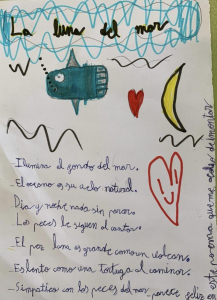 La luna del mar
Ilumina el fondo del mar.
_El oceano es su cielo natural.
Dia y noche nada sin parar.
_Los peces le siguen al cantar.
_El pez luna es grande como un volcan.
_Es lento como una tortuga al caminar.
_Simpatico con los peces del mar parece